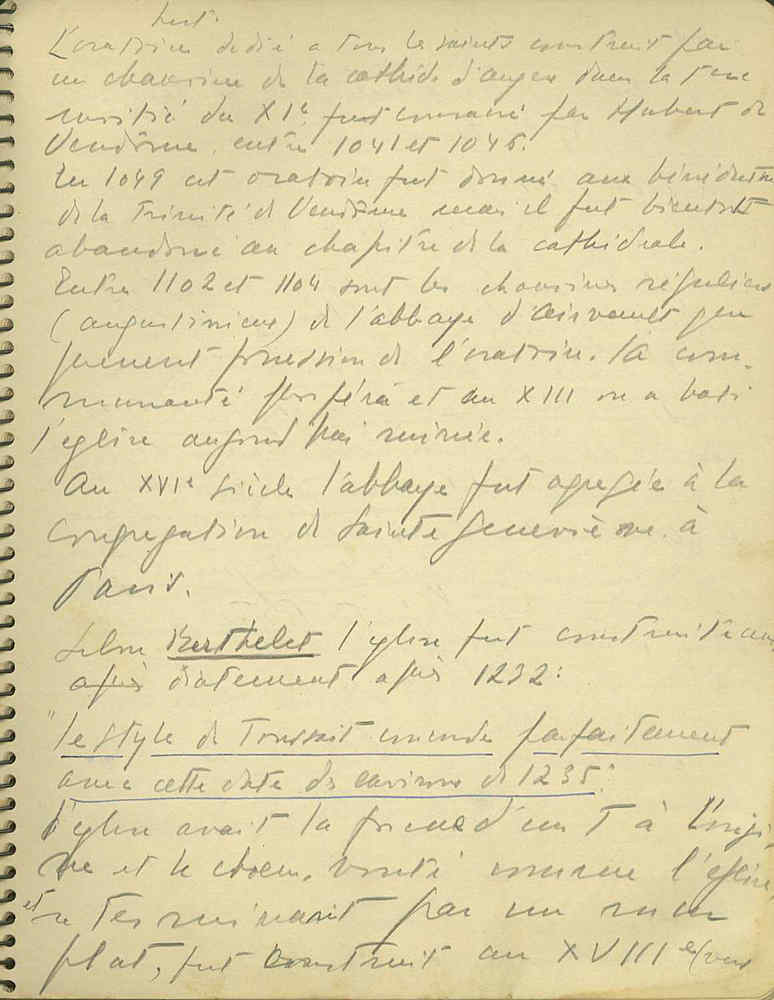 hist.
L'oratoire dédié a tous les saints construit par
un chanoine de la cathéde d'angers dans la 1ere
moitié du XIe, fut consacré par Hubert de
Vendôme, entre 1041 et 1045.
En 1049 cet oratoire fut donné aux bénédictins
de la Trinité de Vendôme mais il fut bientôt
abandonné au chapitre de la cathédrale.
Entre 1102 et 1104 sont les chanoines réguliers
(augustiniens) de l'abbaye d'Airvault que
prennent possession de l'oratoire. la com-
munauté prospéra et au XIII on a bati
l'église aujourd'hui ruinée.
Au XVIe siècle l'abbaye fut agregée à la
Congregation de Sainte Geneviève à
Paris.
Selon Berthelet l'église fut construite
après 1232:
"le style de Toussaint concorde parfaitement
avec cette date des environs de 1235."
l'église avait la forme d'un T à l'origi
ne et le choeur, vouté comme l'église,
et se terminant par un mur
plat, fut construit au XVIIIe (vers